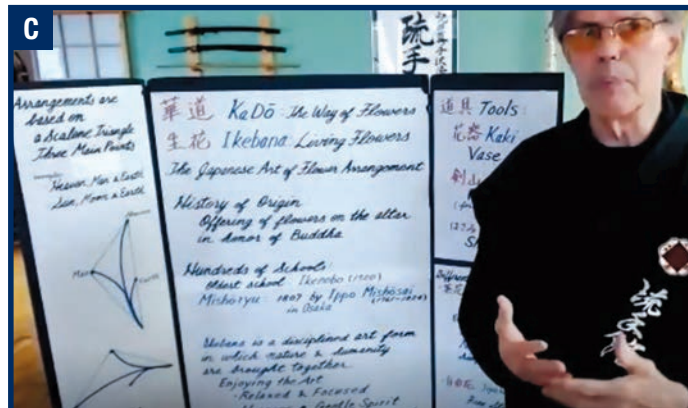 C
Arrangements are
based on
a Scalene Triangle
Three Main Points
Heaven, Man & Earth
Sun, Moon & Earth
Heaven
Man
Earth
華道 KaDō: The Way of Flowers
生花 Ikebana: Living Flowers
The Japanese Art of Flower Arrangement
History of Origin
Offering of flowers on the altar
in honor of Buddha
Hundreds of Schools:
oldest school: Ikenobo
Mishoryu: 1807 by Ippo Mishosai
in Osaka
Ikebana is a disciplined art form
in which nature & humanity
are brought together.
Enjoying the Art
• Relaxed & Focused
& Gentle Spirit
道具 Tools:
花器 Kaki
Vase
剣山
流手